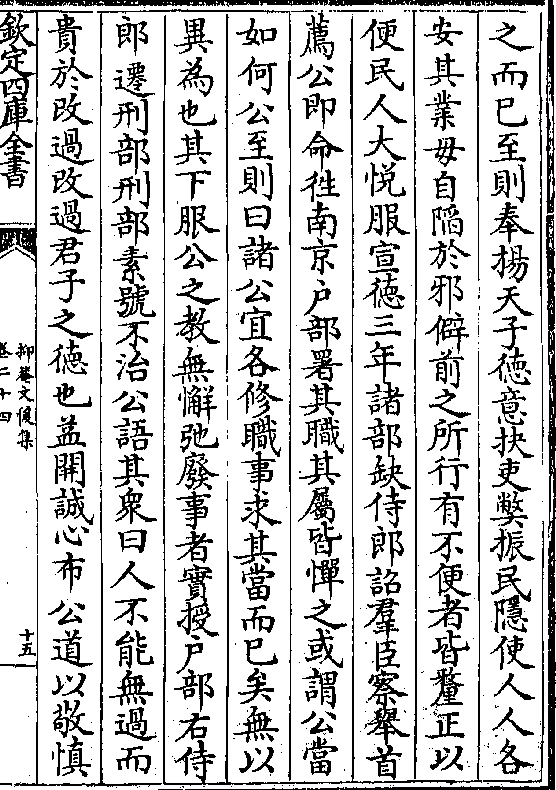 之而已至則奉揚天子徳意抉吏弊振民隱使人人各
安其業毋自䧟於邪僻前之所行有不便者皆釐正以
便民人大悦服宣徳三年諸部缺侍郎詔羣臣察舉首
薦公即命徃南京户部署其職其屬皆憚之或謂公當
如何公至則曰諸公宜各修職事求其當而已矣無以
異為也其下服公之教無懈弛廢事者實授户部右侍
郎遷刑部刑部素號不治公語其衆曰人不能無過而
貴於改過改過君子之徳也益開誠心布公道以敬慎
欽定四庫全書
抑菴文後集
卷二十四
十五